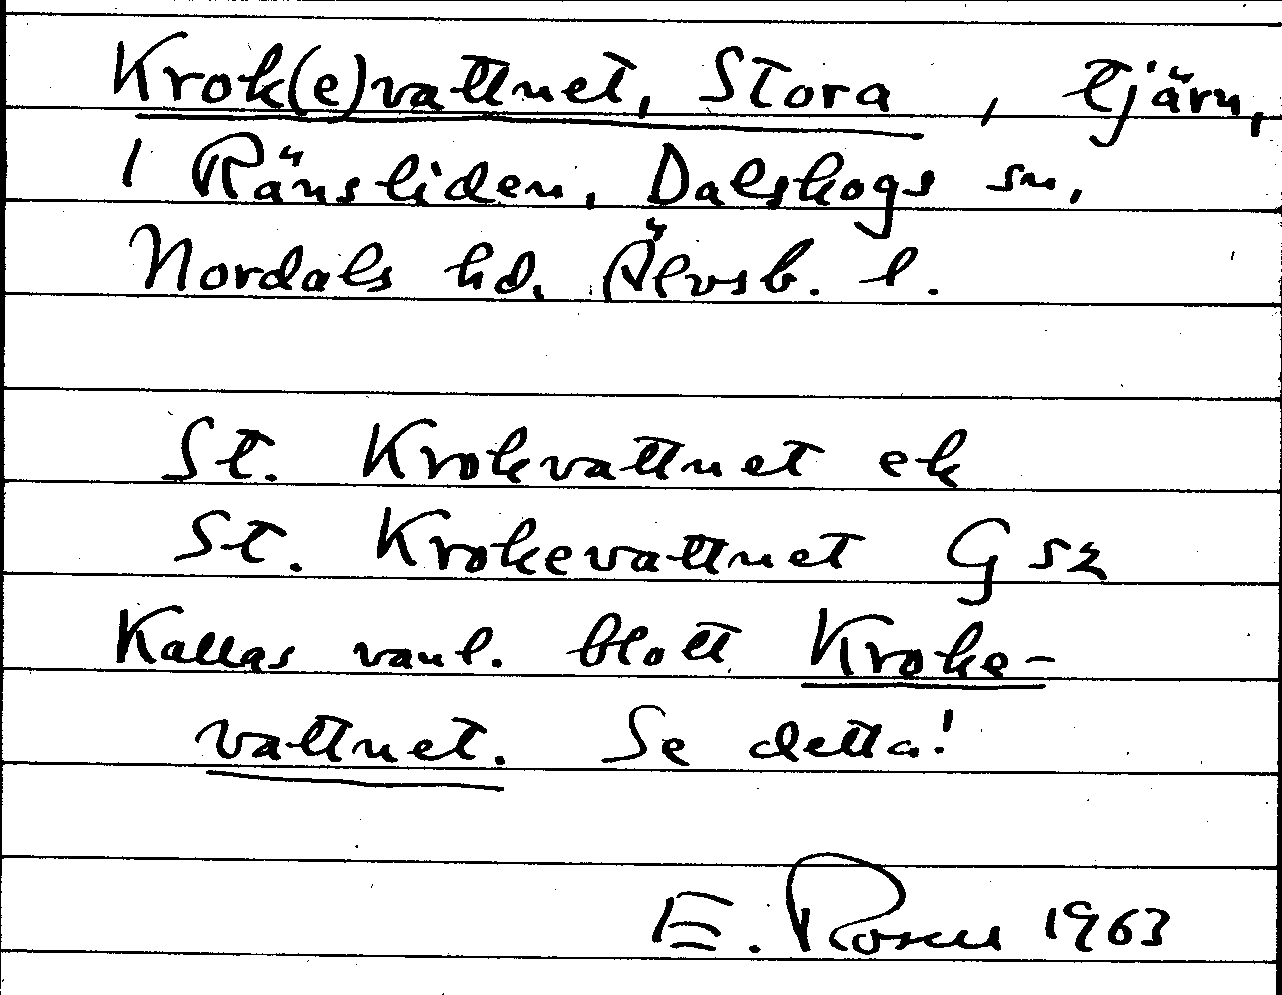 Krok(e)vattnet, Stora, tjärn,
i Ränsliden, Dalskogs sn,
Nordals hd. Älvsb. l.
St. Krokvattnet ek
St. Krokevattnet G
Kallas vanl. blott Kroke-
vattnet. Se detta!
E. Rosen 1963